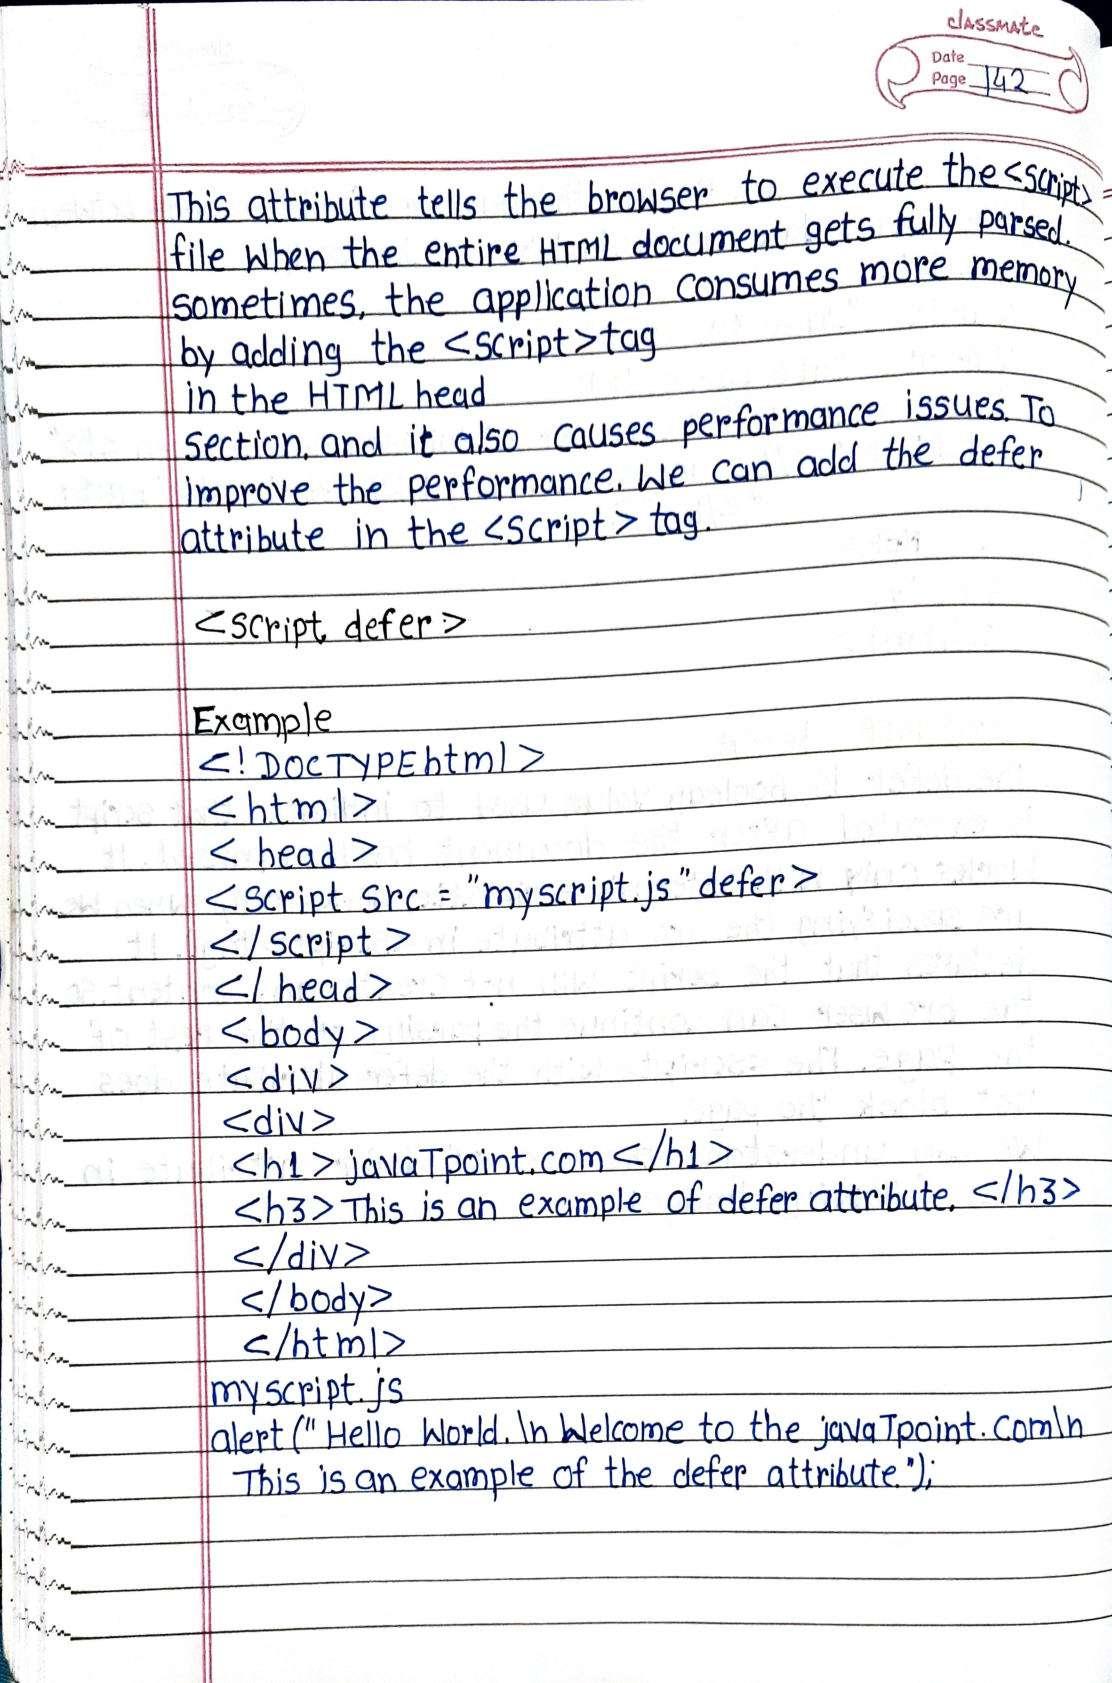 classmate
Date
Page 142
This attribute tells the browser to execute the <script>
file when the entire HTML document gets fully parsed.
sometimes, the application consumes more memory
by adding the <script> tag
in the HTML head
section, and it also causes performance issues. To
improve the performance. We can add the defer
attribute in the <script> tag.
<script defer>
Example
<!DOCTYPE html>
<html>
<head>
<script src = "myscript.js" defer>
</script>
</head>
<body>
<div>
<div>
<h1> javaTpoint.com </h1>
<h3> This is an example of defer attribute. </h3>
</div>
</body>
</html>
myscript.js
alert (" Hello World. \n Welcome to the javaTpoint.com\n
This is an example of the defer attribute.");